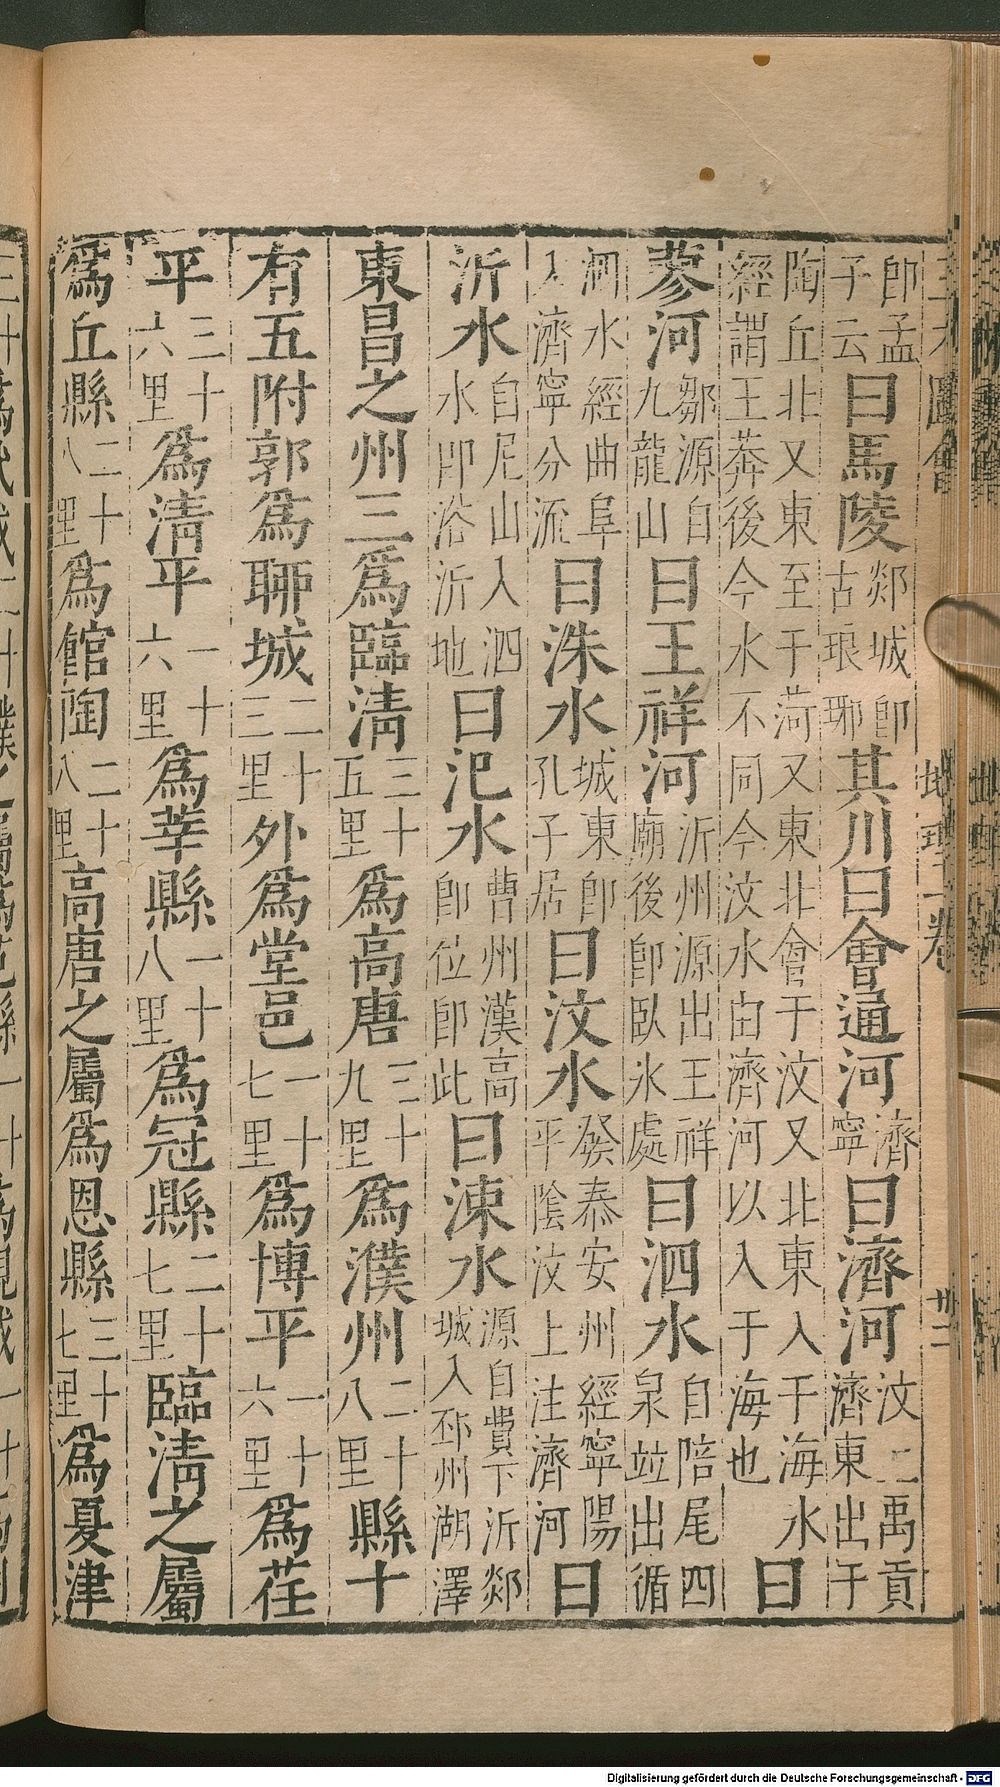 三才圖會 地理二卷 廿二
即孟子云曰馬陵郯城即古琅琊其川曰會通河濟寧曰濟河汶上禹貢濟東出于
陶丘北又東至于菏又東北會于汶又北東入于海水經謂王莽後今水不同今汶水由濟河以入于海也曰
蔘河鄒源自九龍山曰王祥河沂州源出王祥廟後即臥氷處曰泗水自陪尾四泉竝出循
泗水經曲阜入濟寧分流曰洙水城東即孔子居曰汶水發泰安州經寧陽平陰汶上注濟河曰
沂水自尼山入泗水即浴沂地曰汜水曹州漢高即位即此曰涑水源自費下沂郯城入邳州湖澤
東昌之州三爲臨清三十五里爲高唐三十九里爲濮州二十八里縣十
有五附郭爲聊城二十三里外爲堂邑一十七里爲博平一十六里爲茌
平三十六里爲清平一十六里爲莘縣一十八里爲冠縣二十七里臨清之屬
爲丘縣二十八里爲館陶二十八里高唐之屬爲恩縣三十七里爲夏津
Digitalisierung gefördert durch die Deutsche Forschungsgemeinschaft - DFG